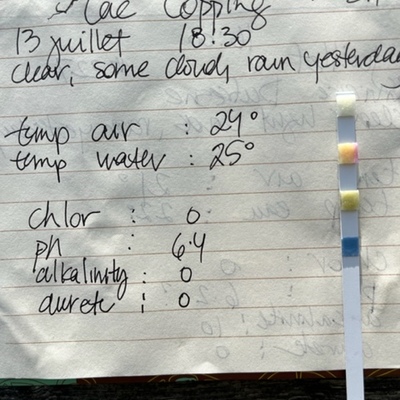 Lac Copping
13 juillet 18:30
clear, some cloud, rain yesterday
temp air : 24°
temp water : 25°
chlor : 0
ph : 6.4
alkalinity : 0
dureté : 0